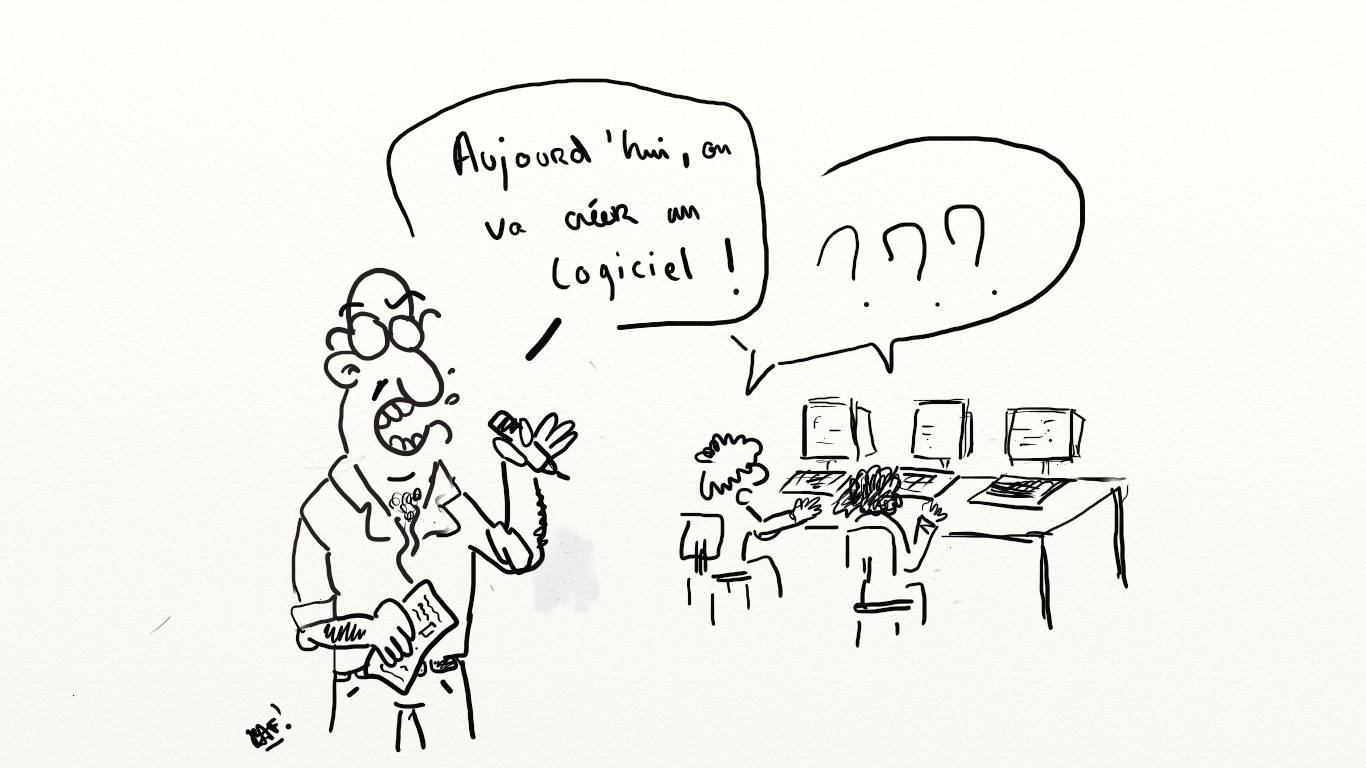 Aujourd'hui, on
va créer un
Logiciel !
? ? ?
RAF!